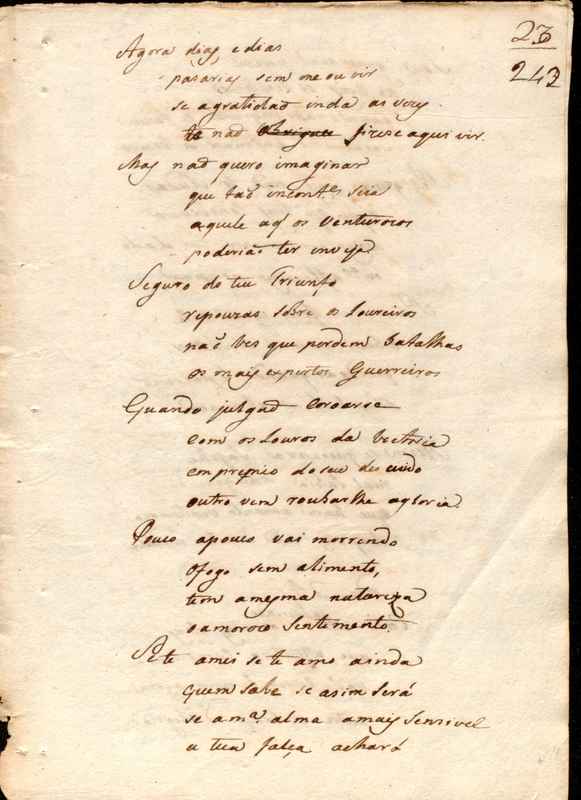 23
243
Agora dias, e dias
pasarias sem me ouvir
se a gratidaõ inda as vezes
te naõ fizese aqui vir.
Mas naõ quero imaginar
que taõ incont.e seia
aquele a q os venturozos
poderiaõ ter inveja
Seguro do teu Triunfo
repouzas sobre os Loureiros
naõ ves que perdem batalhas
os mais expertos Guerreiros
Quando julgaõ coroarse
com os Louros da Vectoria
em premio do seu descuido
outro vem roubarlhe a gloria.
Pouco apouco vai morrendo
o fogo sem alimento,
tem a mesma natureza
o amorozo sentemento.
Se te amei se te amo ainda
quem sabe se asim será
se a m.a alma a mais sensivel
a tua falça achará